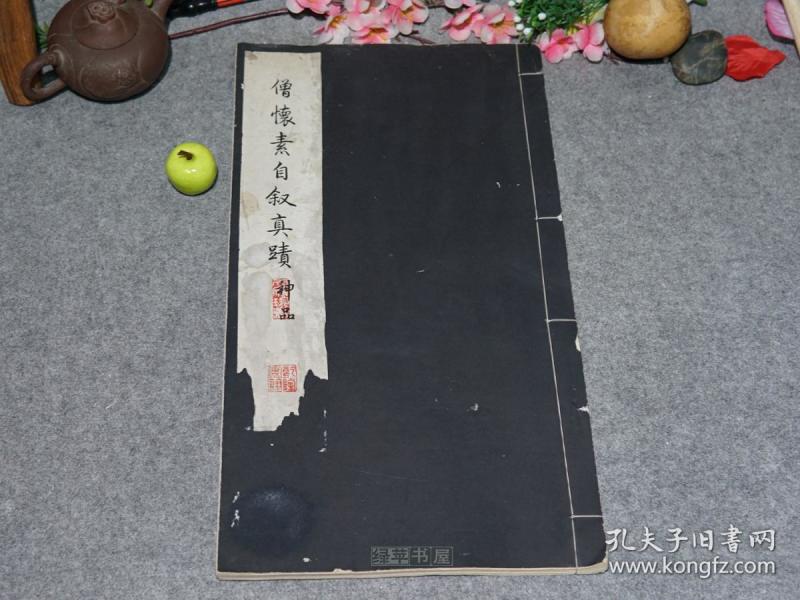 僧懷素自叙真蹟
神品
绿苹书屋
孔夫子旧書网
www.kongfz.com